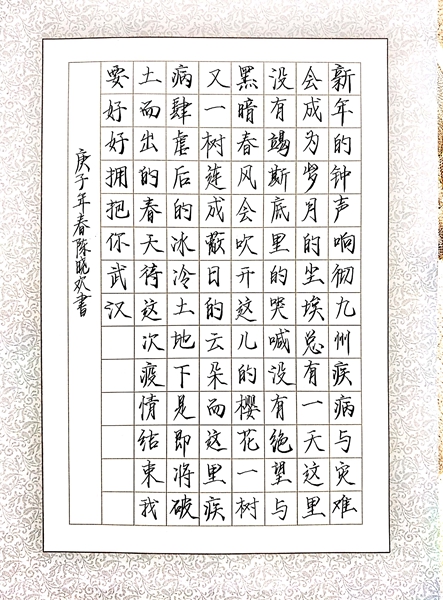 新年的钟声响彻九州疾病与灾难
会成为岁月的尘埃总有一天这里
没有竭斯底里的哭喊没有绝望与
黑暗春风会吹开这儿的樱花一树
又一树莲成蔽日的云朵而这里疾
病肆虐后的冰冷土地下见即将破
土而出的春天待这次疫情结束我
要好好拥抱你武汉
庚子年春陈晓欢書